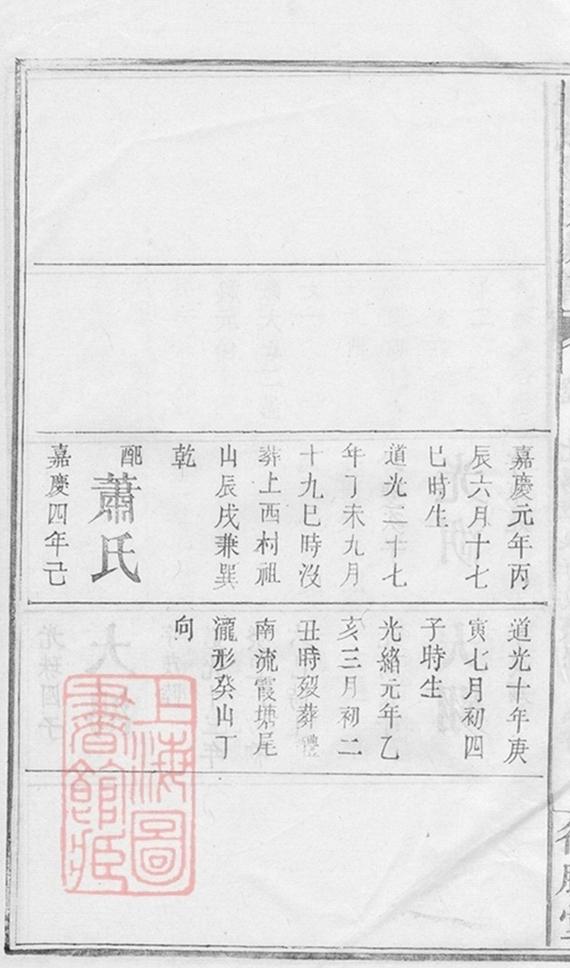 嘉慶元年丙
辰六月十七
巳時生
道光二十七
年丁未九月
十九巳時沒
葬上西村祖
山辰戌兼巽
乾
配蕭氏
嘉慶四年己
道光十年庚
寅七月初四
子時生
光緒元年乙
亥三月初二
丑時歿葬禮
南流霞塘尾
形癸山丁
向
上海圖
書館藏